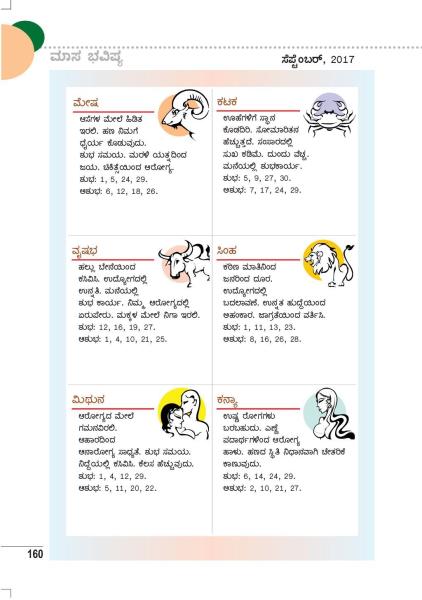 ಮಾಸ ಭವಿಷ್ಯ
ಸೆಪ್ಟೆಂಬರ್, 2017
ಮೇಷ
ಆಸೆಗಳ ಮೇಲೆ ಹಿಡಿತ
ಇರಲಿ. ಹಣ ನಿಮಗೆ
ಧೈರ್ಯ ಕೊಡುವುದು.
ಶುಭ ಸಮಯ. ಮರಳಿ ಯತ್ನದಿಂದ
ಜಯ. ಚಿಕಿತ್ಸೆಯಿಂದ ಆರೋಗ್ಯ.
ಶುಭ: 1, 5, 24, 29.
ಅಶುಭ: 6, 12, 18, 26.
ಕಟಕ
ಊಹೆಗಳಿಗೆ ಸ್ಥಾನ
ಕೊಡದಿರಿ. ಸೋಮಾರಿತನ
ಹೆಚ್ಚುತ್ತದೆ. ಸಂಸಾರದಲ್ಲಿ
ಸುಖ ಕಡಿಮೆ. ದುಂದು ವೆಚ್ಚ.
ಮನೆಯಲ್ಲಿ ಶುಭಕಾರ್ಯ.
ಶುಭ: 5, 9, 27, 30.
ಅಶುಭ: 7, 17, 24, 29.
ವೃಷಭ
ಹಲ್ಲು ಬೇನೆಯಿಂದ
ಕಸಿವಿಸಿ. ಉದ್ಯೋಗದಲ್ಲಿ
ಉನ್ನತಿ. ಮನೆಯಲ್ಲಿ
ಶುಭ ಕಾರ್ಯ. ನಿಮ್ಮ ಆರೋಗ್ಯದಲ್ಲಿ
ಏರುಪೇರು. ಮಕ್ಕಳ ಮೇಲೆ ನಿಗಾ ಇರಲಿ.
ಶುಭ: 12, 16, 19, 27.
ಅಶುಭ: 1, 4, 10, 21, 25.
ಸಿಂಹ
ಕಠಿಣ ಮಾತಿನಿಂದ
ಜನರಿಂದ ದೂರ.
ಉದ್ಯೋಗದಲ್ಲಿ
ಬದಲಾವಣೆ. ಉನ್ನತ ಹುದ್ದೆಯಿಂದ
ಅಹಂಕಾರ. ಜಾಗ್ರತೆಯಿಂದ ವರ್ತಿಸಿ.
ಶುಭ: 1, 11, 13, 23.
ಅಶುಭ: 8, 16, 26, 28.
ಮಿಥುನ
ಆರೋಗ್ಯದ ಮೇಲೆ
ಗಮನವಿರಲಿ.
ಆಹಾರದಿಂದ
ಅನಾರೋಗ್ಯ ಸಾಧ್ಯತೆ. ಶುಭ ಸಮಯ.
ನಿದ್ದೆಯಲ್ಲಿ ಕಸಿವಿಸಿ. ಕೆಲಸ ಹೆಚ್ಚುವುದು.
ಶುಭ: 1, 4, 12, 29.
ಅಶುಭ: 5, 11, 20, 22.
ಕನ್ಯಾ
ಉಷ್ಣ ರೋಗಗಳು
ಬರಬಹುದು. ಎಣ್ಣೆ
ಪದಾರ್ಥಗಳಿಂದ ಆರೋಗ್ಯ
ಹಾಳು. ಹಣದ ಸ್ಥಿತಿ ನಿಧಾನವಾಗಿ ಚೇತರಿಕೆ
ಕಾಣುವುದು.
ಶುಭ: 6, 14, 24, 29.
ಅಶುಭ: 2, 10, 21, 27.
160